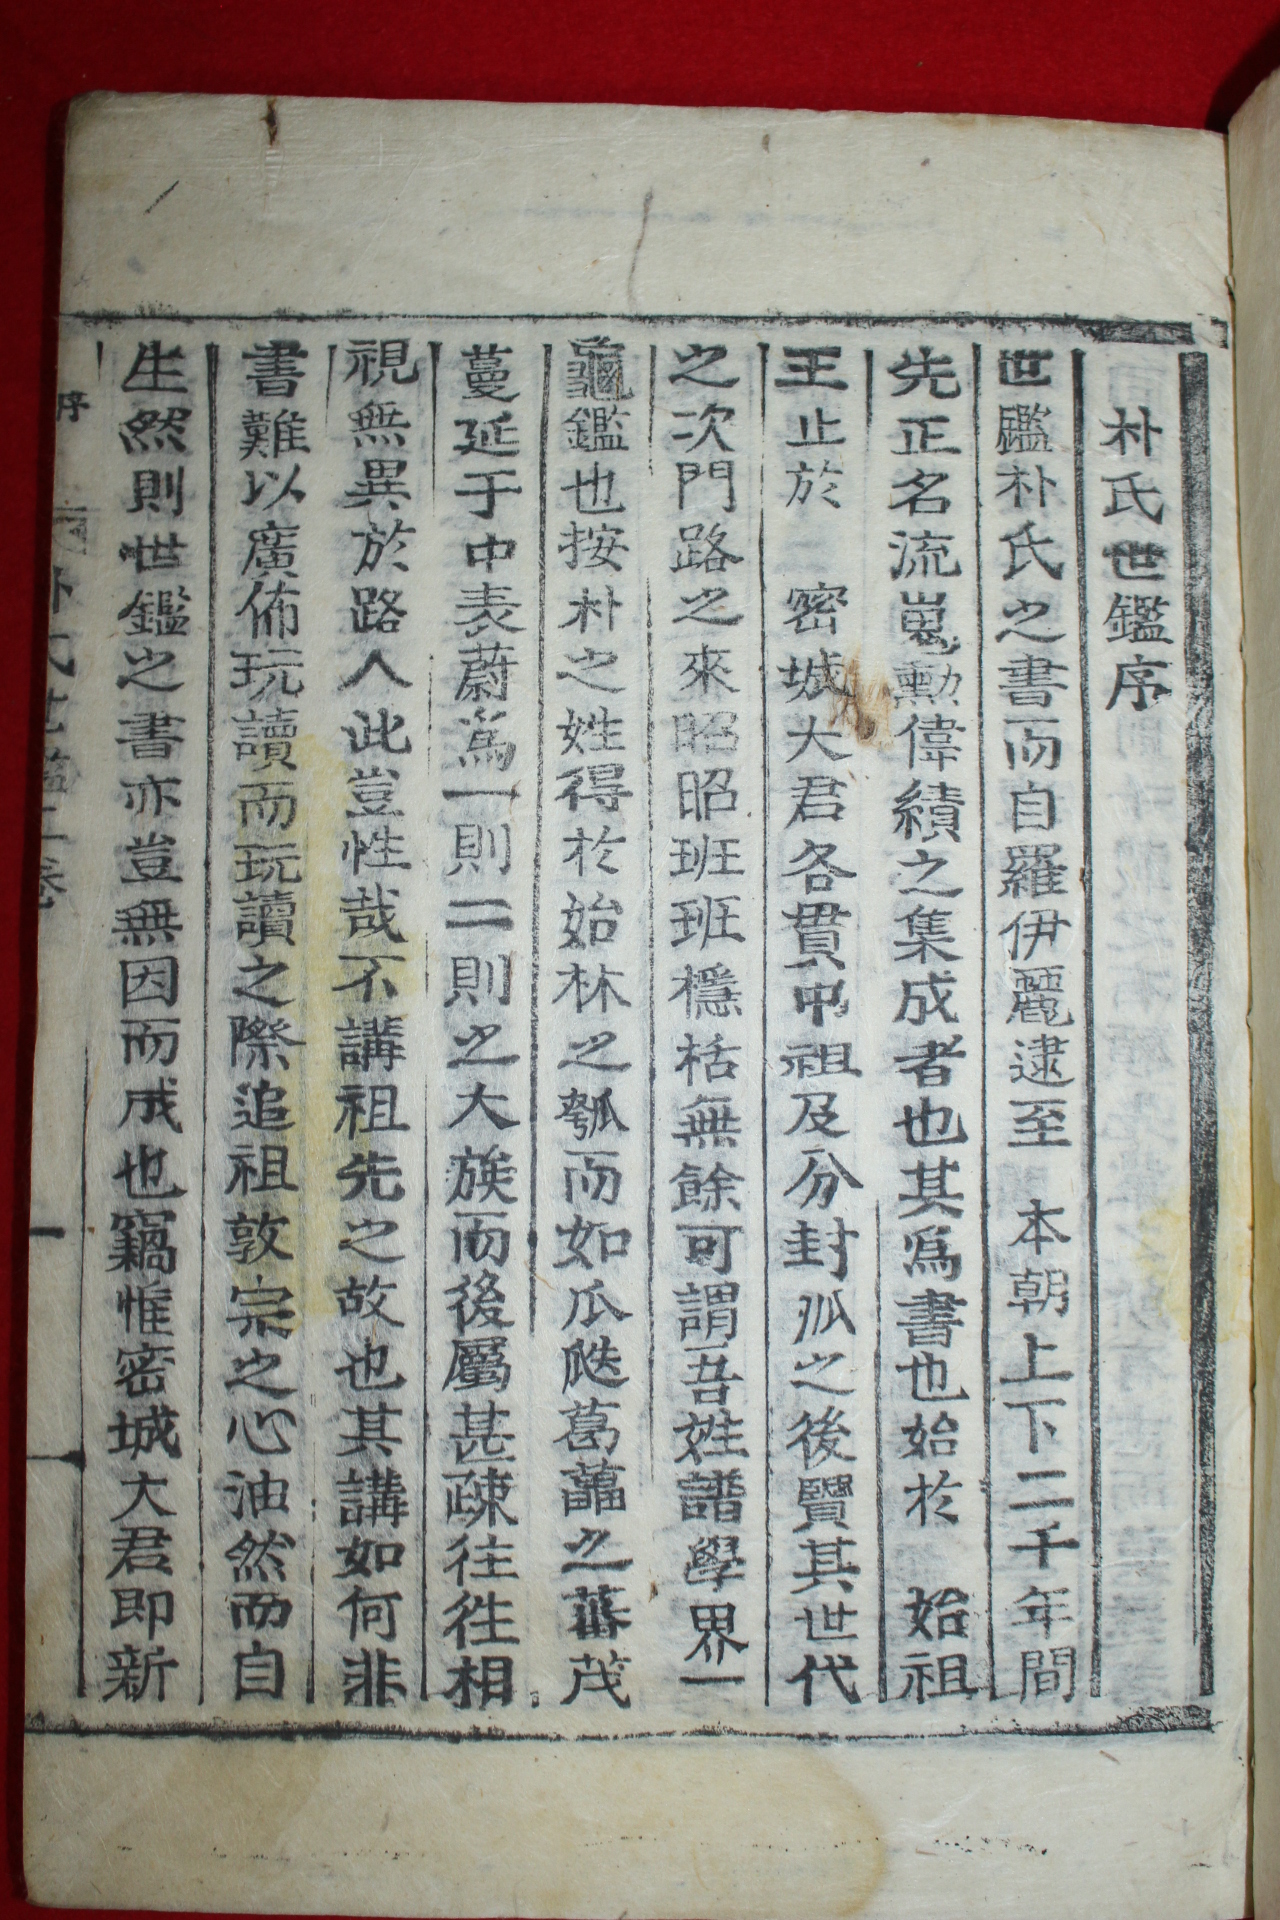 朴氏世鑑序
世鑑朴氏之書而自羅伊麗逮至 本朝上下二千年間
先正名流嵬勳偉績之集成者也其爲書也始於 始祖
王止於 密城大君各貫中祖及分封派之後賢其世代
之次門路之來昭昭班班檼栝無餘可謂吾姓譜學界一
龜鑑也按朴之姓得於始林之瓠而如瓜瓞葛藟之蕃茂
蔓延于中表蔚爲一則二則之大族而後屬甚疎往往相
視無異於路人此豈性哉不講祖先之故也其講如何非
書難以廣佈玩讀而玩讀之際追祖敦宗之心油然而自
生然則世鑑之書亦豈無因而成也竊惟密城大君即新
序
朴氏世鑑上卷
一